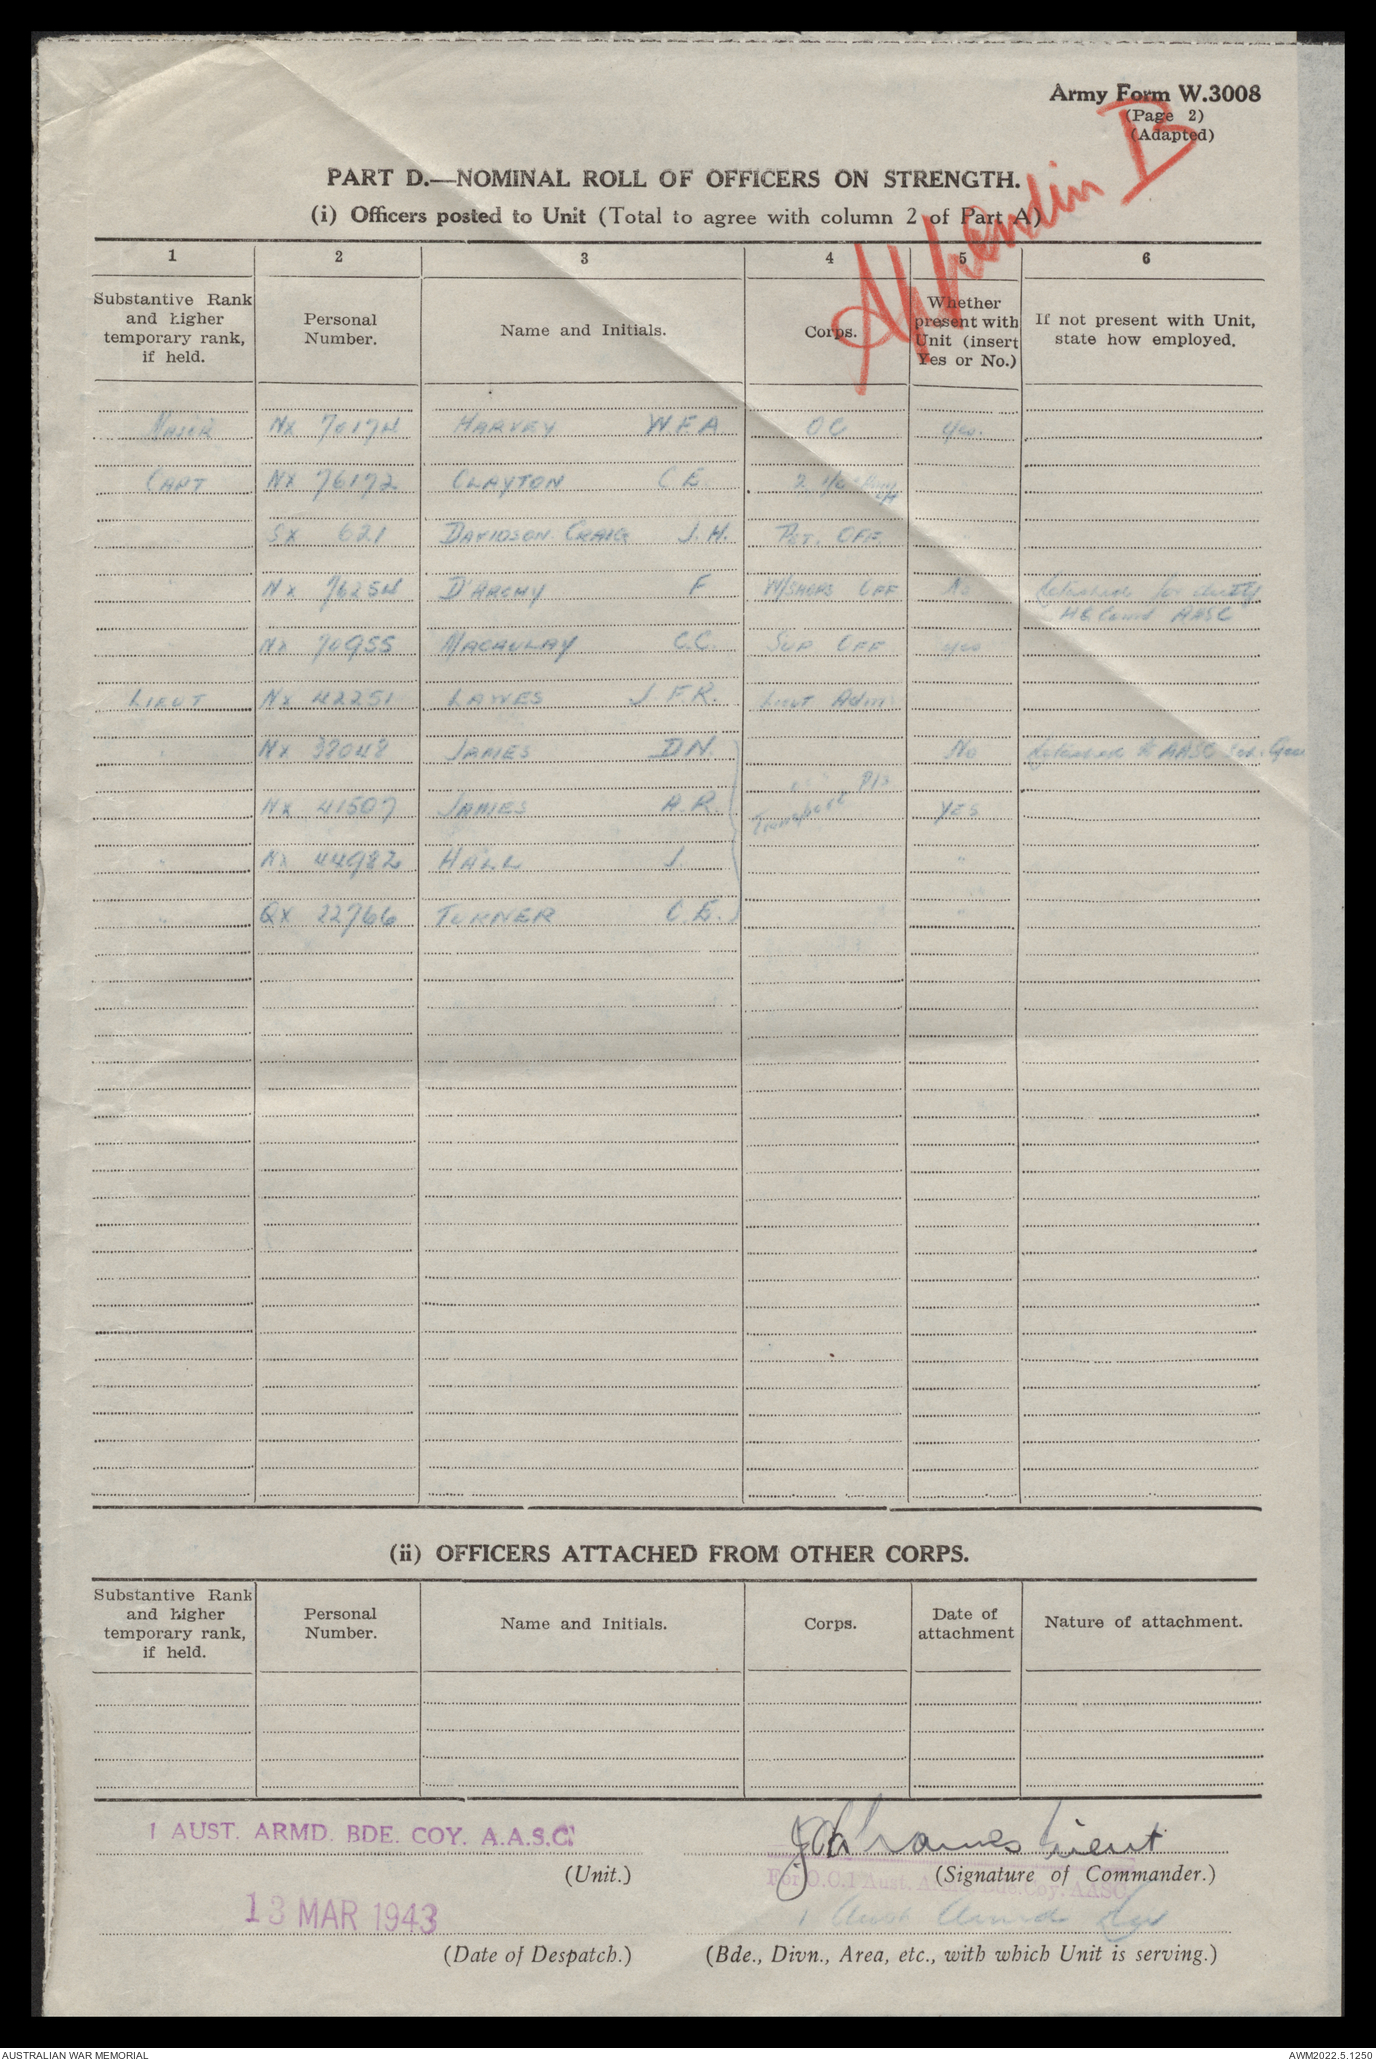 Army Form W.3008
(Page 2)
(Adapted)
Appendix B
PART D.—NOMINAL ROLL OF OFFICERS ON STRENGTH.
(i) Officers posted to Unit (Total to agree with column 2 of Part A)
1 2 3 4 5 6
Substantive Rank and higher temporary rank, if held. Personal Number. Name and Initials. Corps. Whether present with Unit (insert Yes or No.) If not present with Unit, state how employed.
MAJOR NX 76174 HARVEY W.F.A OC yes.
CAPT NX 76172 CLAYTON C E 2 i/c
SX 621 DAVIDSON CRAIG J.H. PET. OFF
" NX 76254 D'ARCHY F W/SHOPS OFF No Detached for duty
HQ Comd AASC
NX 70955 MACAULAY C.C. SUP OFF yes
LIEUT NX 42251 LAWES J.F.R. Lieut Adm
" NX 38048 JAMES D.N. No Detached to AASC
NX 41507 JAMES A.R. Transport Pls YES
" NX 44982 HALL J. "
" QX 22766 TURNER C.E. "
(ii) OFFICERS ATTACHED FROM OTHER CORPS.
Substantive Rank and higher temporary rank, if held. Personal Number. Name and Initials. Corps. Date of attachment Nature of attachment.
1 AUST. ARMD. BDE. COY. A.A.S.C.
Lieut
(Unit.) (Signature of Commander.)
For O.C. 1 Aust. Armd. Bde. Coy. AASC
13 MAR 1943
1 Aust Armd
(Date of Despatch.) (Bde., Divn., Area, etc., with which Unit is serving.)
AUSTRALIAN WAR MEMORIAL
AWM2022.5.1250